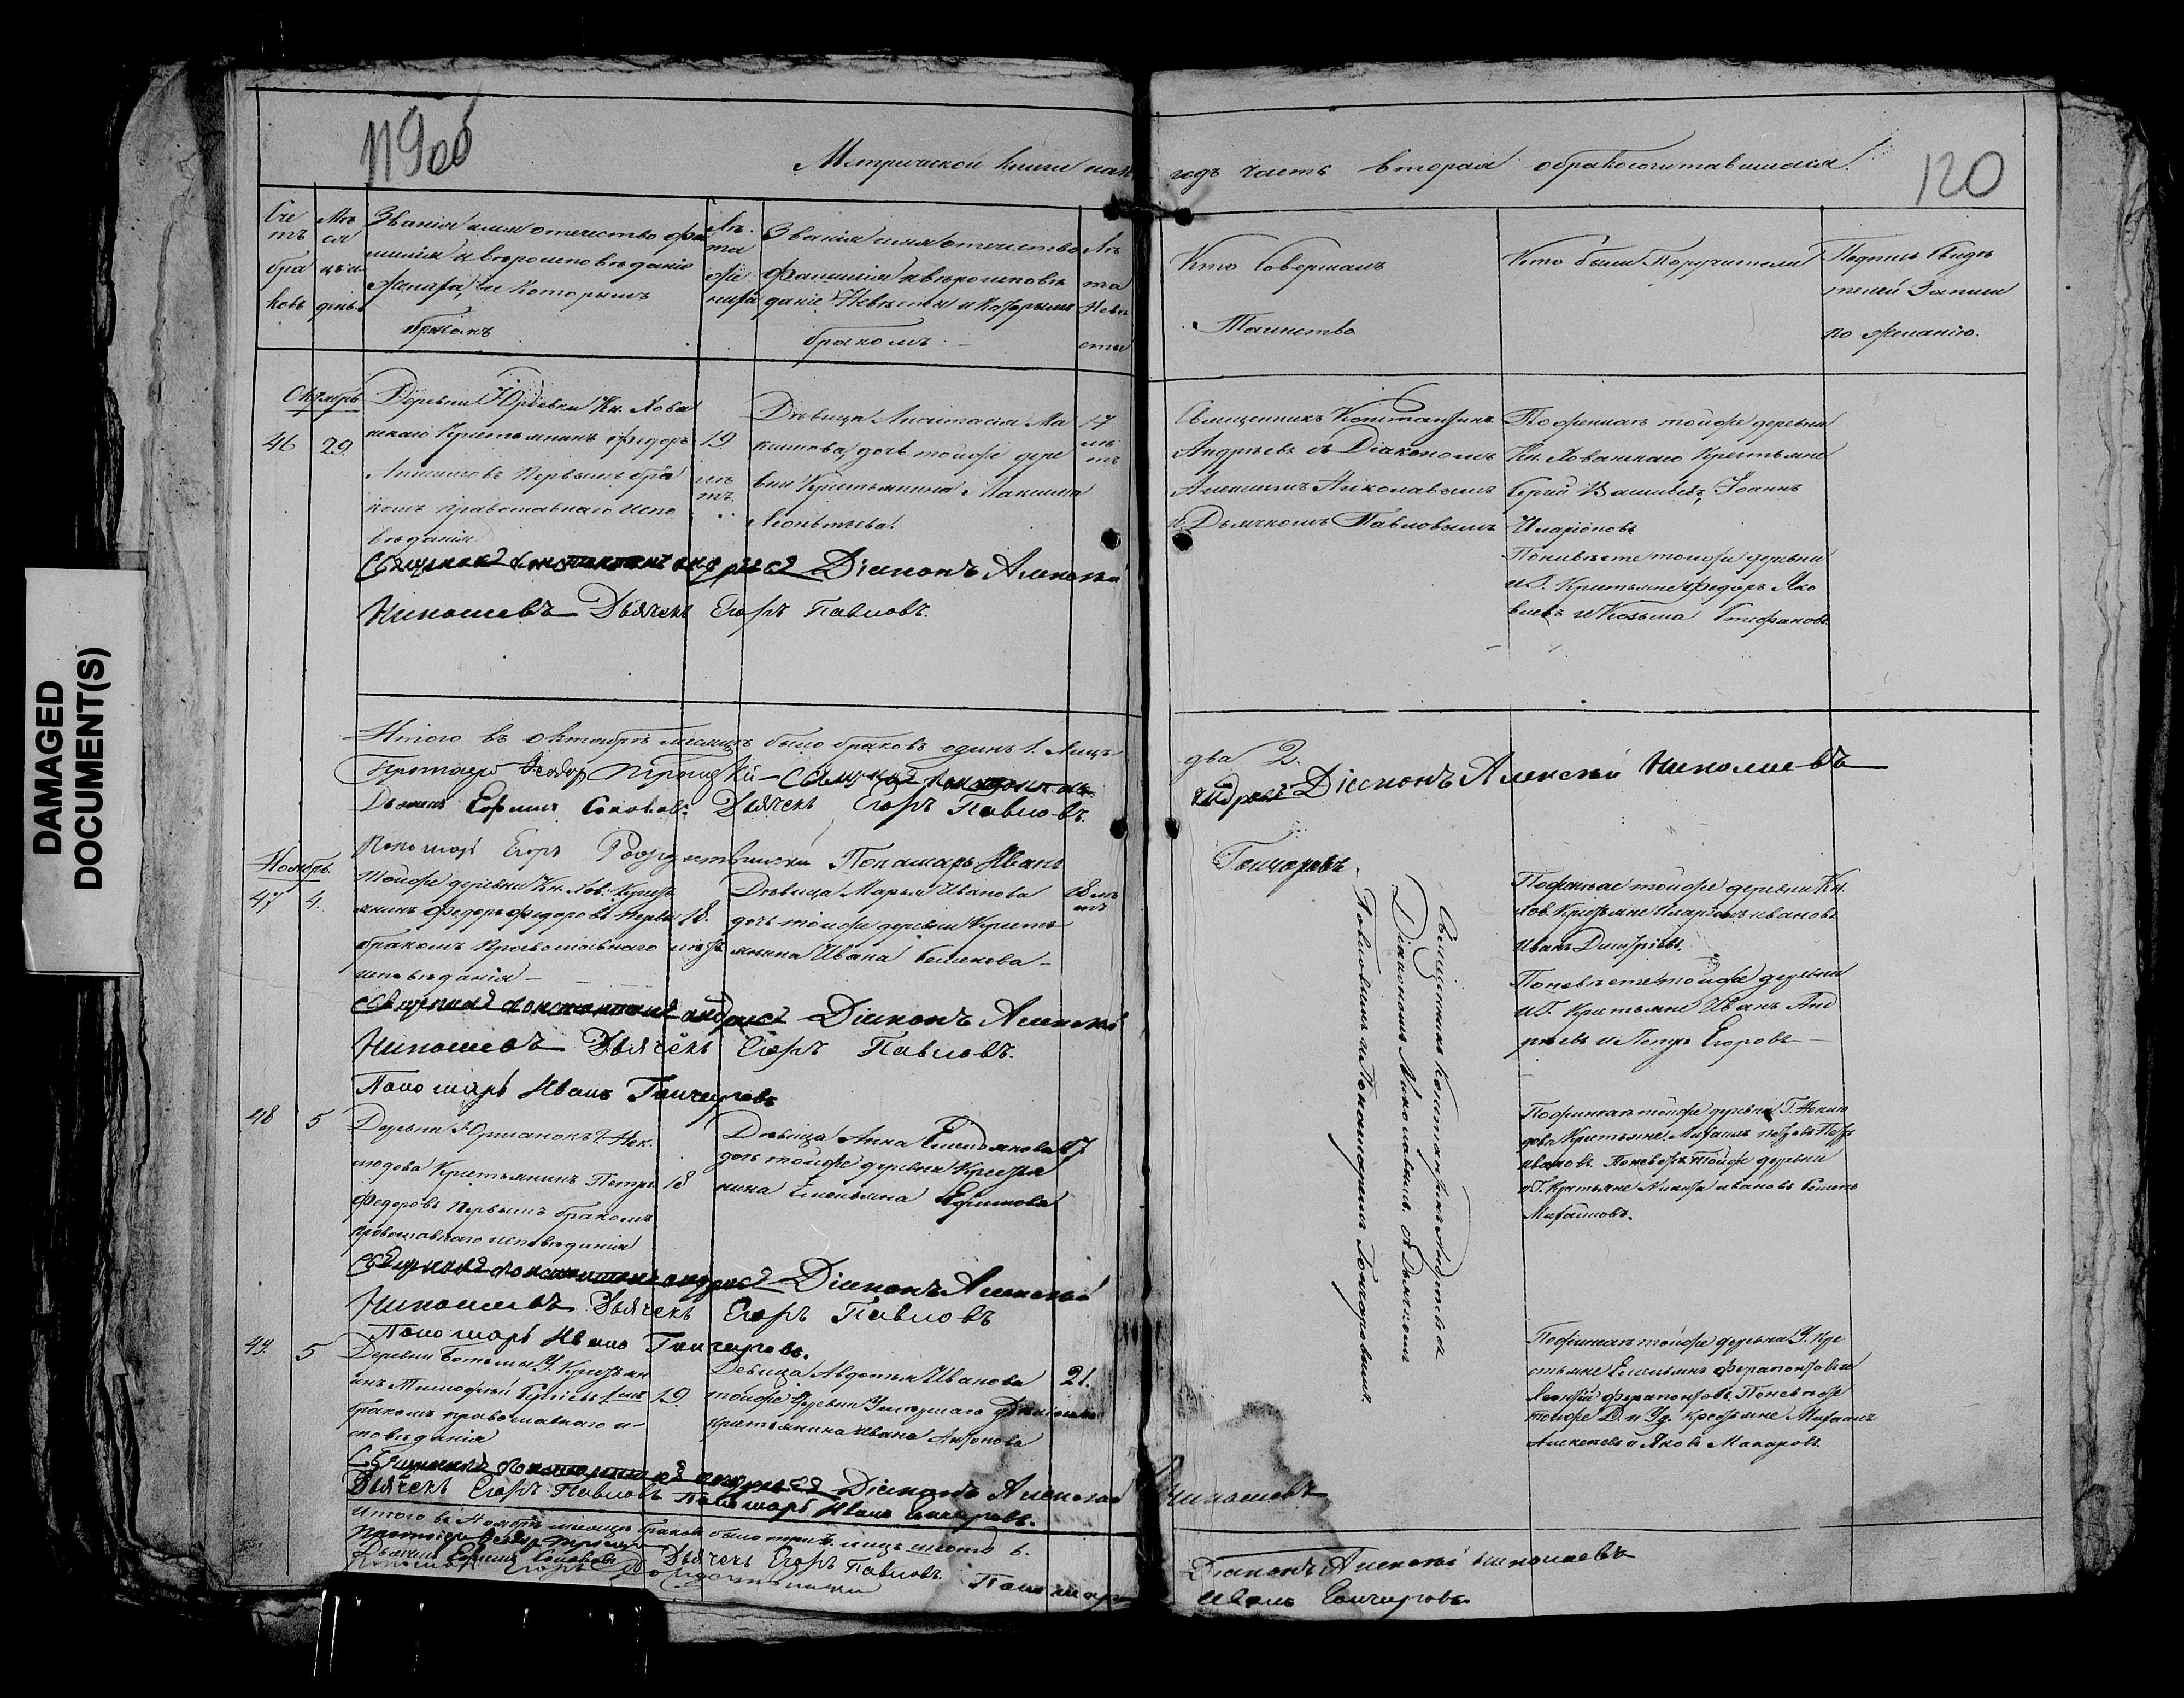 119об
Метрической книги на
годъ часть вторая о бракосочитавшихся.
120
Сче
тъ
бра
ковъ
Мѣ
ся
цъ и
день
Званія имя отечество фа
милія и вѣроисповѣданіе
Жениха, и которымъ
бракомъ
Лѣ
та
же
ниха
Званія имя отечество
Фамилія и вѣроисповѣ
даніе Невѣсты и которымъ
бракомъ
Лѣ
та
Невѣ
сты
Кто Совершалъ
Таинство
Кто были Поручители
Подпись Свидѣ
телей Записи
по желанію.
Октябрь
46
29
Деревни Юрьевки Кн. Хова
нскаго Крестьянинъ Федоръ
первымъ бра
комъ православнаго испо
вѣданія
19
лѣ
тъ
Дѣвица Анастасія Ма
ксимова, дочь тойже дере
вни Крестьянина Максима
Леонтьева
17
лѣ
тъ
Священникъ Константинъ
Андреевъ съ Діакономъ
Алексѣемъ Николаевымъ
и Дьячкомъ Павловымъ
По женихѣ тойже деревни
Кн. Хованскаго Крестьяне
Сергѣй Васильевъ, Іоаннъ
Иларіоновъ
По невѣсте тойже деревни
и Г. Крестьяне Федоръ Яко
влевъ и Козьма Стефановъ
Священникъ Константинъ Андреевъ Діаконъ Алексѣй
Николаевъ Дьячекъ Егоръ Павловъ.
Итого въ октябрѣ месяцѣ было браковъ одинъ 1. Лицъ
два 2.
Протоіерей Феодор Троицкій Священникъ Константинъ
Андреевъ Діаконъ Алексѣй Николаевъ
Дьячекъ Ефимъ Соколовъ Дьячекъ Егоръ Павловъ.
Пономарь Егоръ Рождественскій Понамарь Иванъ
Гончаровъ.
Ноябрь
47
4.
Тойже деревни Кн. Хов. Кресть
янинъ Федоръ Федоровъ первы
бракомъ Православнаго
исповѣданія
18.
лѣтъ
Дѣвица Марья Иванова
дочь тойже деревни Кресть
янина Ивана Семенова
18 лѣ
тъ
Священникъ Константинъ Андреевъ съ
Діакономъ Николаевымъ съ Дьячкомъ
Павловымъ и Понамаремъ Гончаровымъ
По женихе тойже деревни Кн.
Хов. Крестьяне Иларіонъ Ивановъ
Иванъ Дмитріевъ.
По невѣсте тойже деревни
и Г. Крестьяне Иванъ Анд
реевъ и Петръ Егоровъ
Священникъ Константинъ Андреевъ Діаконъ Алексѣй
Николаевъ Дьячекъ Егоръ Павловъ.
Пономарь Иванъ Гончаровъ
48
5
Деревни Юрманокъ Г. Нек
людова Крестьянинъ Петръ
Федоровъ первымъ бракомъ
православнаго исповѣданія
18
Дѣвица Анна Емельянова
дочь тойже деревни Крестья
нина Емельяна Ефимова
17
По женихѣ тойже деревни Г. Неклю
дова Крестьяне Михаилъ Петровъ Петръ
Ивановъ. По невѣстѣ тойже деревни
и Г. Крестьяне Никита Ивановъ Семенъ
Михайловъ.
Священникъ Константинъ Андреевъ Діаконъ Алексѣй
Николаевъ Дьячекъ Егоръ Павловъ
Пономарь Иванъ Гончаровъ.
49.
5
Деревни Ботьмы У. Крестьян
инъ Тимофей 1мъ
бракомъ православнаго и
сповѣданія
19
Девица Авдотья Иванова
тойже деревни
крестьянина Ивана Антонова
21.
По женихѣ тойже деревни У. Кре
стьяне Емельянъ Ферапонтовъ и
Леонтій Ферапонтовъ. По невѣсте
тойже Д. и Уд. крестьяне Михаилъ
Алексеевъ и Яковъ Макаровъ.
Священникъ Константинъ Андреевъ Діаконъ Алексѣй Николаевъ
Дьячекъ Егоръ Павловъ Пономарь Иванъ Гончаровъ.
Итого въ Ноябрѣ месяцѣ браковъ было три 3. лицъ шесть 6.
Протоіерей Феодор Троицкій
Діаконъ Алексѣй Николаевъ
Дьячекъ Ефимъ Соколовъ Дьячекъ Егоръ Павловъ.
Пономарь Егоръ Рождественскій Пономарь
Иванъ Гончаровъ
DAMAGED
DOCUMENT(S)